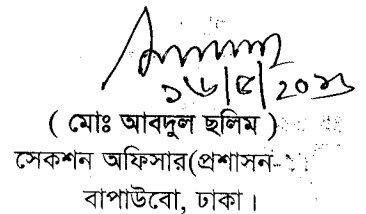 ১৬/৫/২০১৬
( মোঃ আবদুল ছলিম )
সেকশন অফিসার(প্রশাসন-
বাপাউবো, ঢাকা।